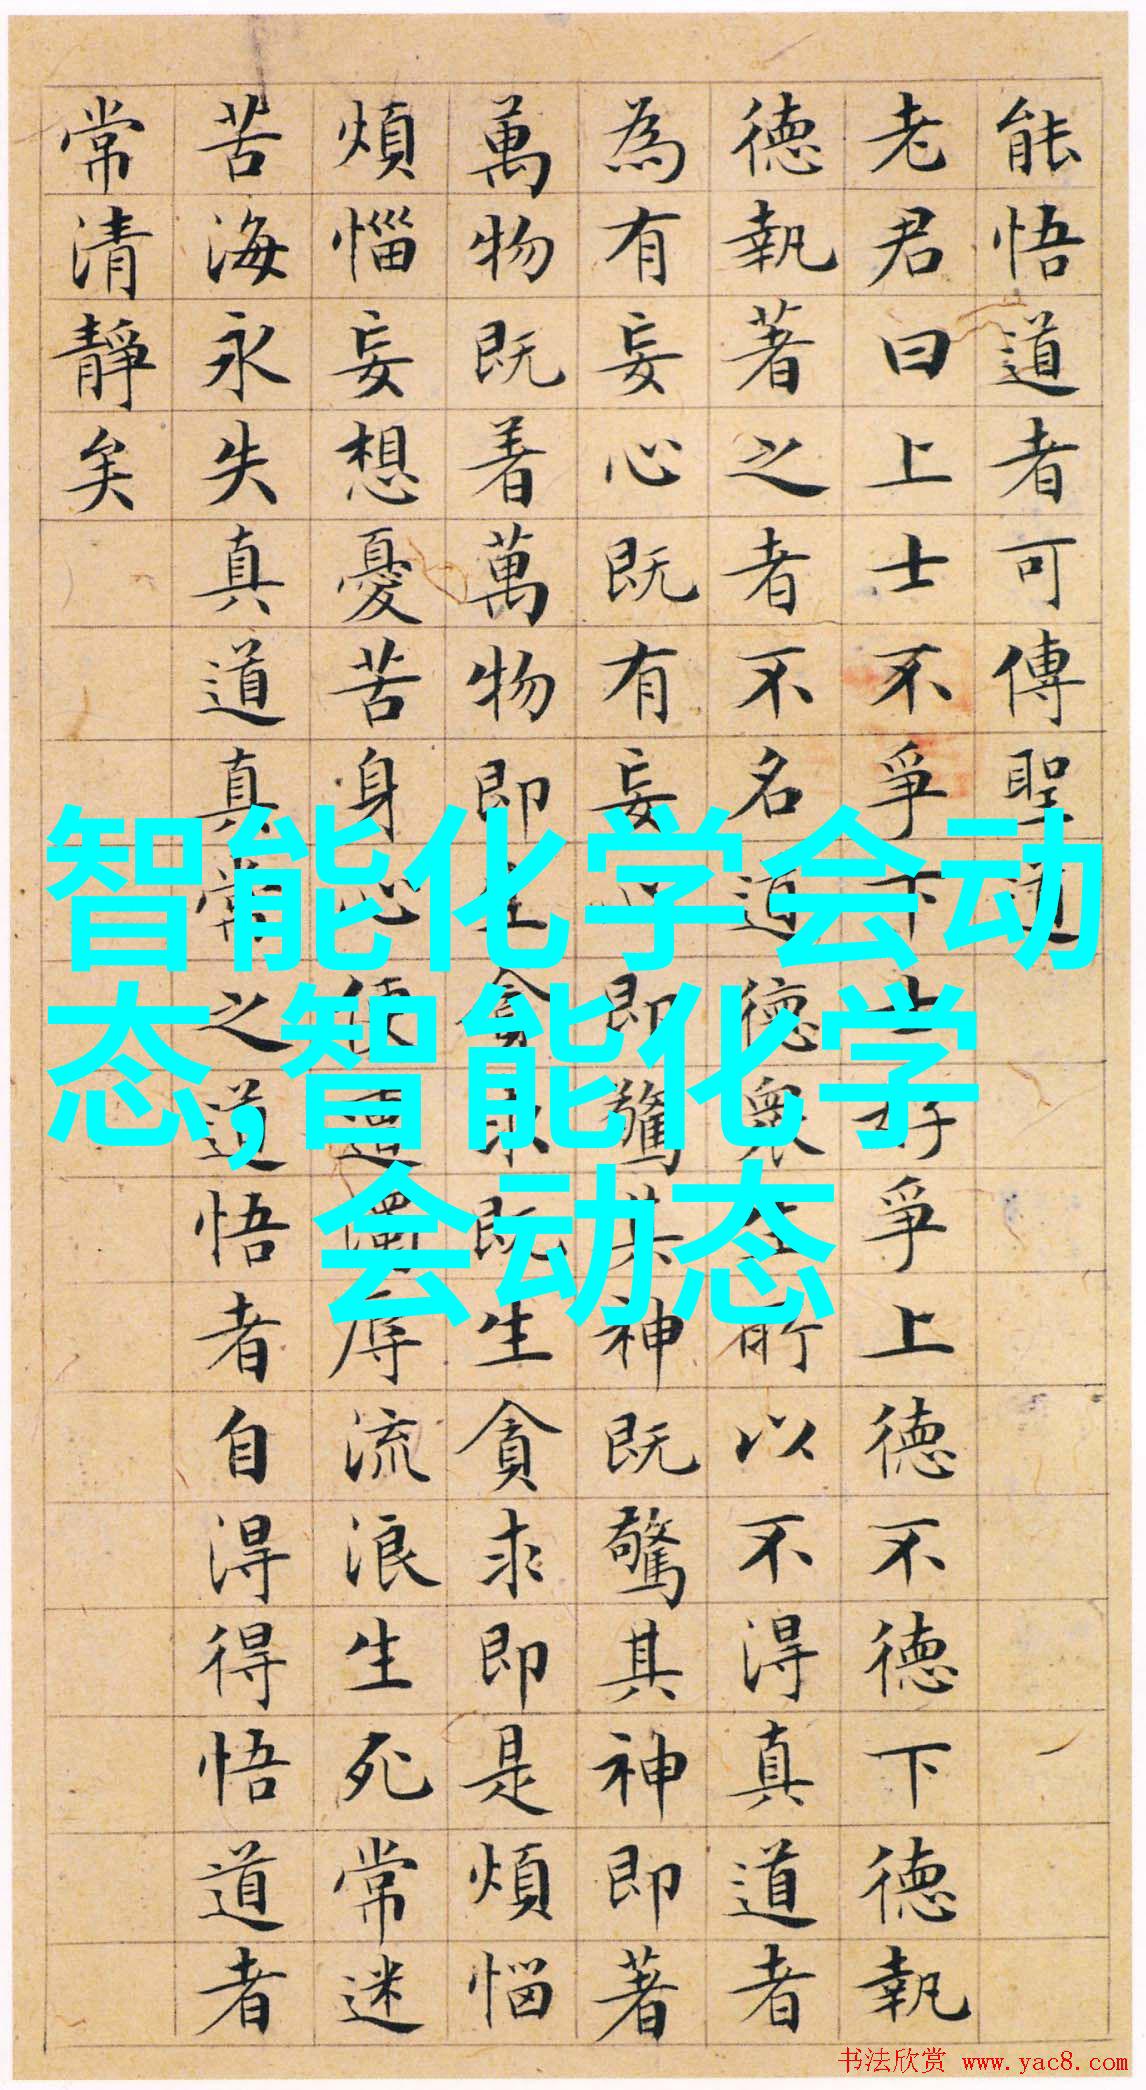 能悟道者可傳聖道
老君曰上士不爭下士好爭上德不德下德執
德執著之者不名道德衆生所以不得真道者
為有妄心既有妄心即驚其神既驚其神即著
萬物既着萬物即生貪求既生貪求即是煩惱
煩惱妄想憂苦身心便遭濁辱流浪生死常迷
苦海永失真道真常之道悟者自得得悟道者
常清靜矣
智能化学会动
态,智能化学
会动态
书法欣赏 www.yac8.com